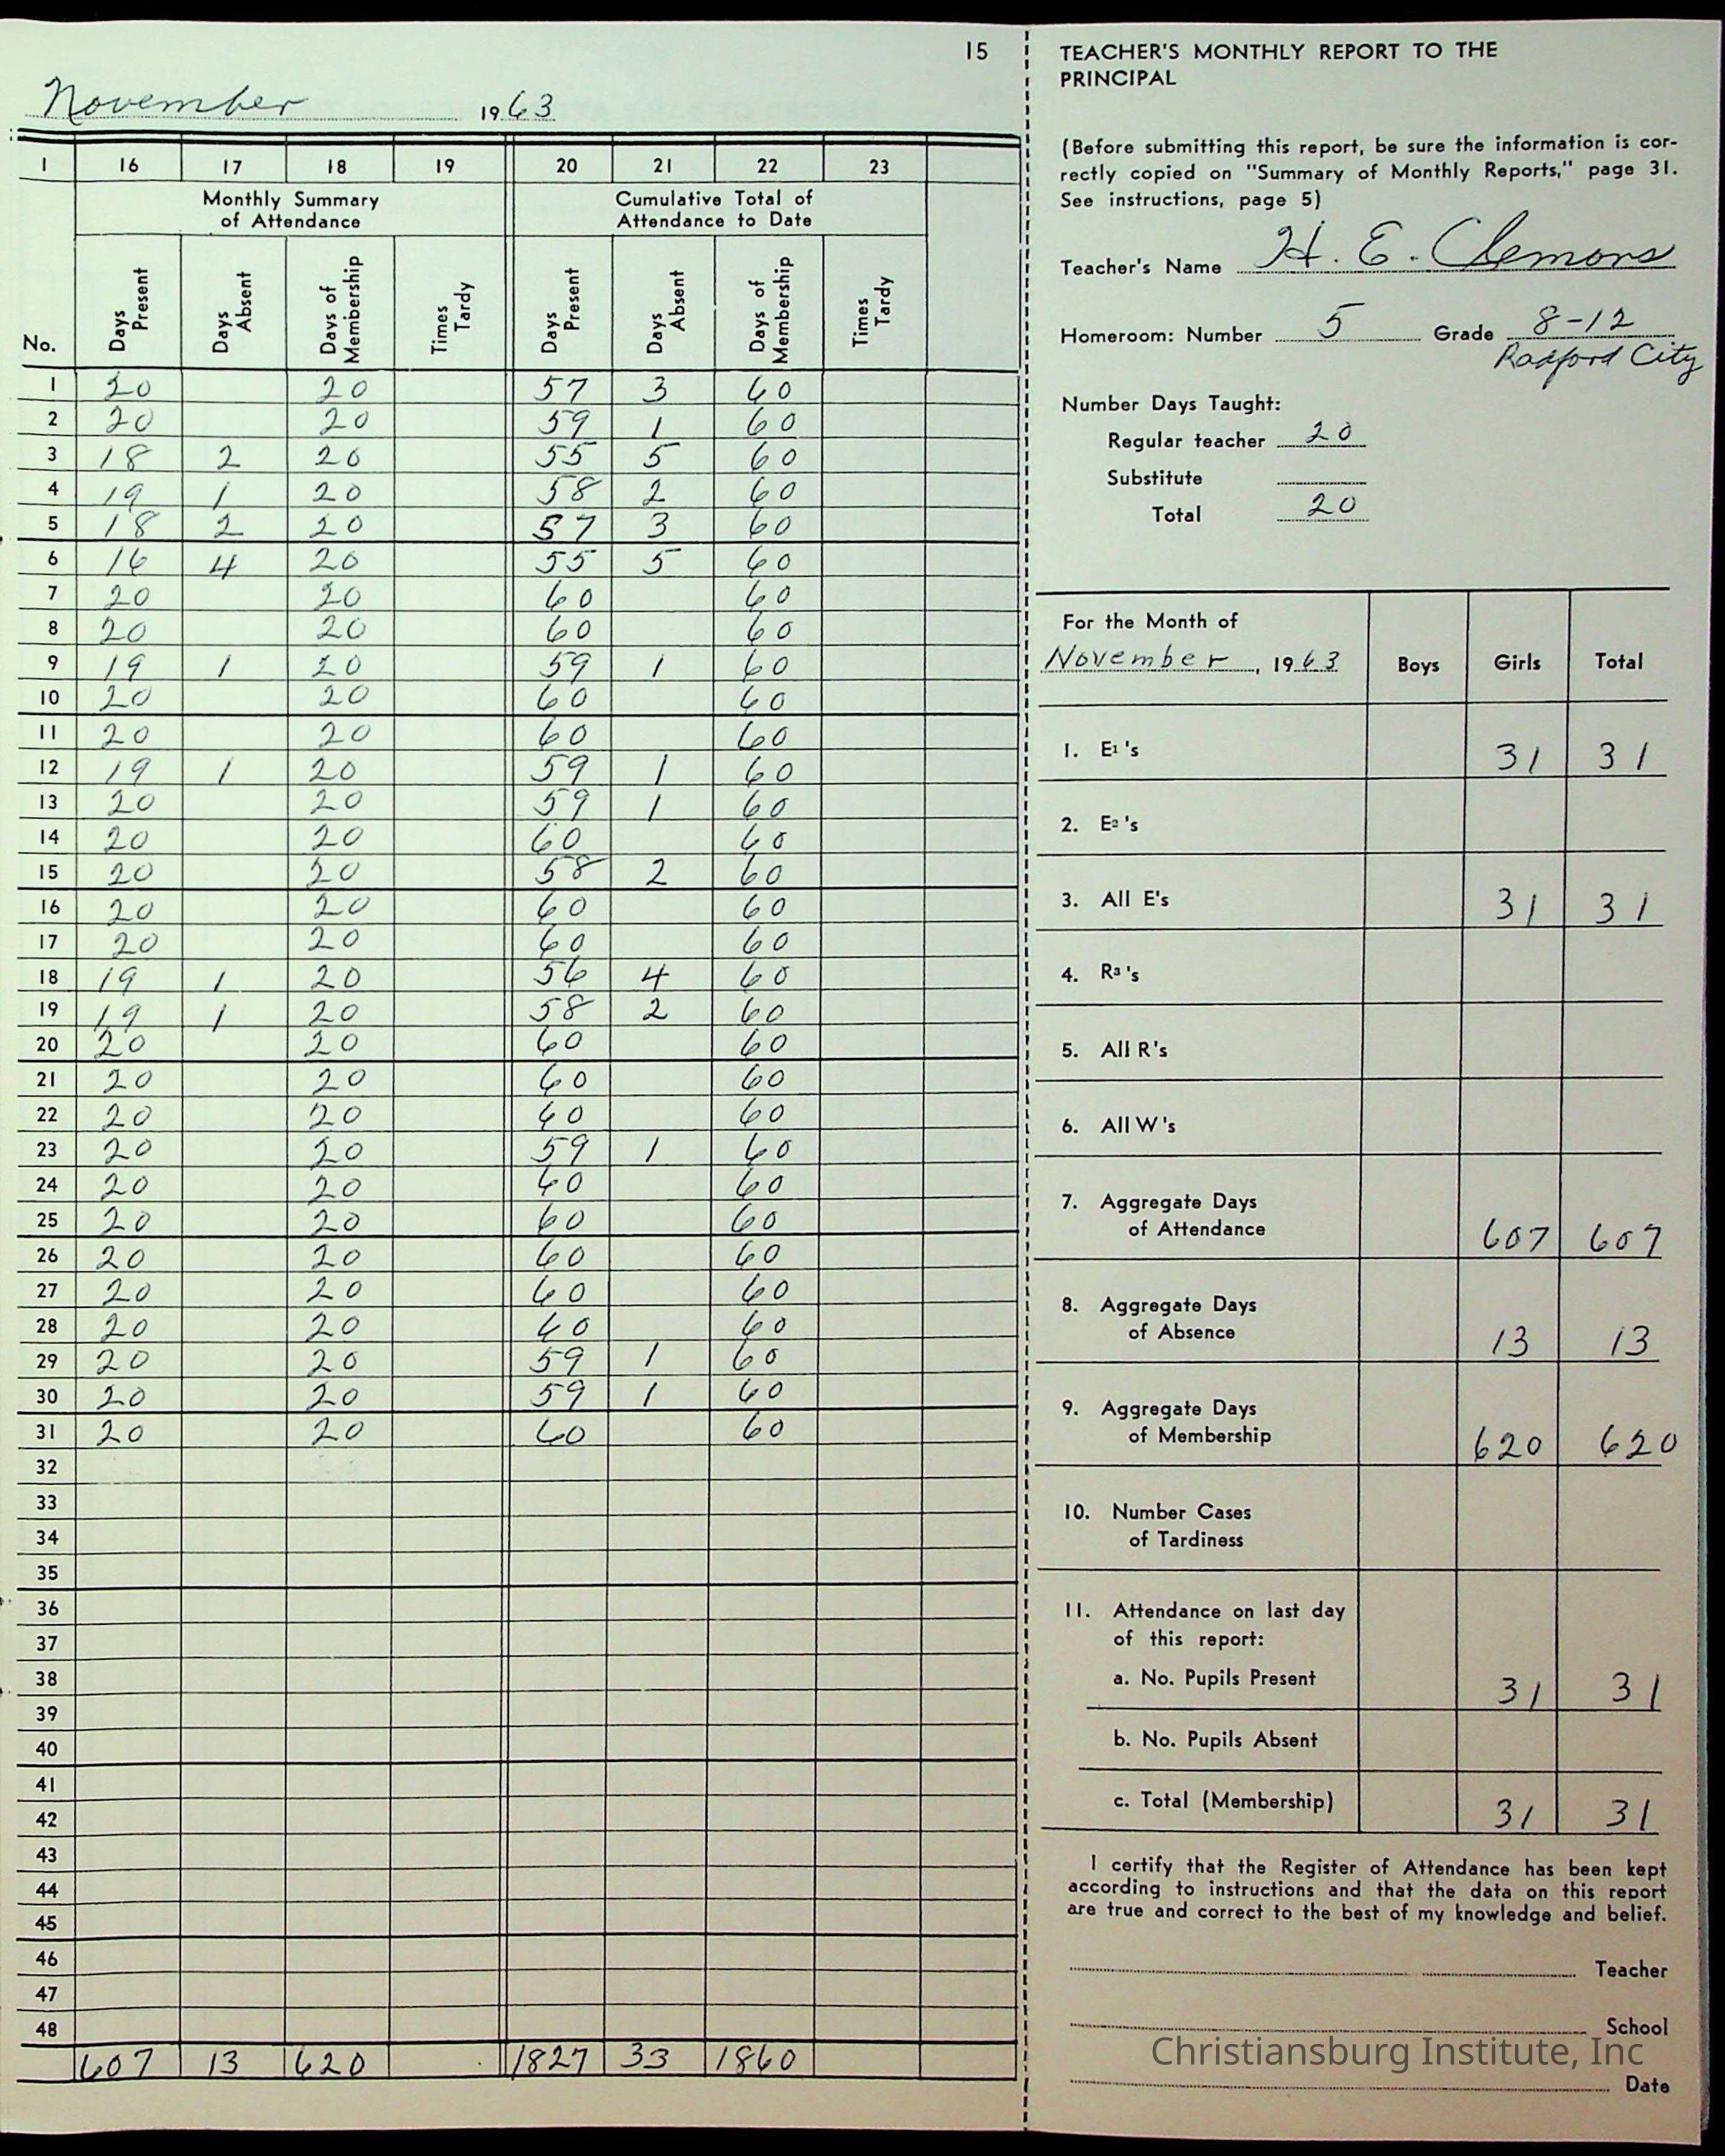 15
November 1963
1 16 17 18 19 20 21 22 23
Monthly Summary of Attendance Cumulative Total of Attendance to Date
No. Days Present Days Absent Days of Membership Times Tardy Days Present Days Absent Days of Membership Times Tardy
1 20 20 57 3 60
2 20 20 59 1 60
3 18 2 20 55 5 60
4 19 1 20 58 2 60
5 18 2 20 57 3 60
6 16 4 20 55 5 60
7 20 20 60 60
8 20 20 60 60
9 19 1 20 59 1 60
10 20 20 60 60
11 20 20 60 60
12 19 1 20 59 1 60
13 20 20 59 1 60
14 20 20 60 60
15 20 20 58 2 60
16 20 20 60 60
17 20 20 60 60
18 19 1 20 56 4 60
19 19 1 20 58 2 60
20 20 20 60 60
21 20 20 60 60
22 20 20 60 60
23 20 20 59 1 60
24 20 20 60 60
25 20 20 60 60
26 20 20 60 60
27 20 20 60 60
28 20 20 60 60
29 20 20 59 1 60
30 20 20 59 1 60
31 20 20 60 60
32
33
34
35
36
37
38
39
40
41
42
43
44
45
46
47
48
607 13 620 1827 33 1860
TEACHER'S MONTHLY REPORT TO THE
PRINCIPAL
(Before submitting this report, be sure the information is cor-
rectly copied on "Summary of Monthly Reports," page 31.
See instructions, page 5)
Teacher's Name H. E. Clemons
Homeroom: Number 5 Grade 8-12
Radford City
Number Days Taught:
Regular teacher 20
Substitute
Total 20
For the Month of
November, 1963 Boys Girls Total
1. E1's 31 31
2. E2's
3. All E's 31 31
4. R3's
5. All R's
6. All W's
7. Aggregate Days
of Attendance 607 607
8. Aggregate Days
of Absence 13 13
9. Aggregate Days
of Membership 620 620
10. Number Cases
of Tardiness
11. Attendance on last day
of this report:
a. No. Pupils Present 31 31
b. No. Pupils Absent
c. Total (Membership) 31 31
I certify that the Register of Attendance has been kept
according to instructions and that the data on this report
are true and correct to the best of my knowledge and belief.
Teacher
School
Christiansburg Institute, Inc
Date